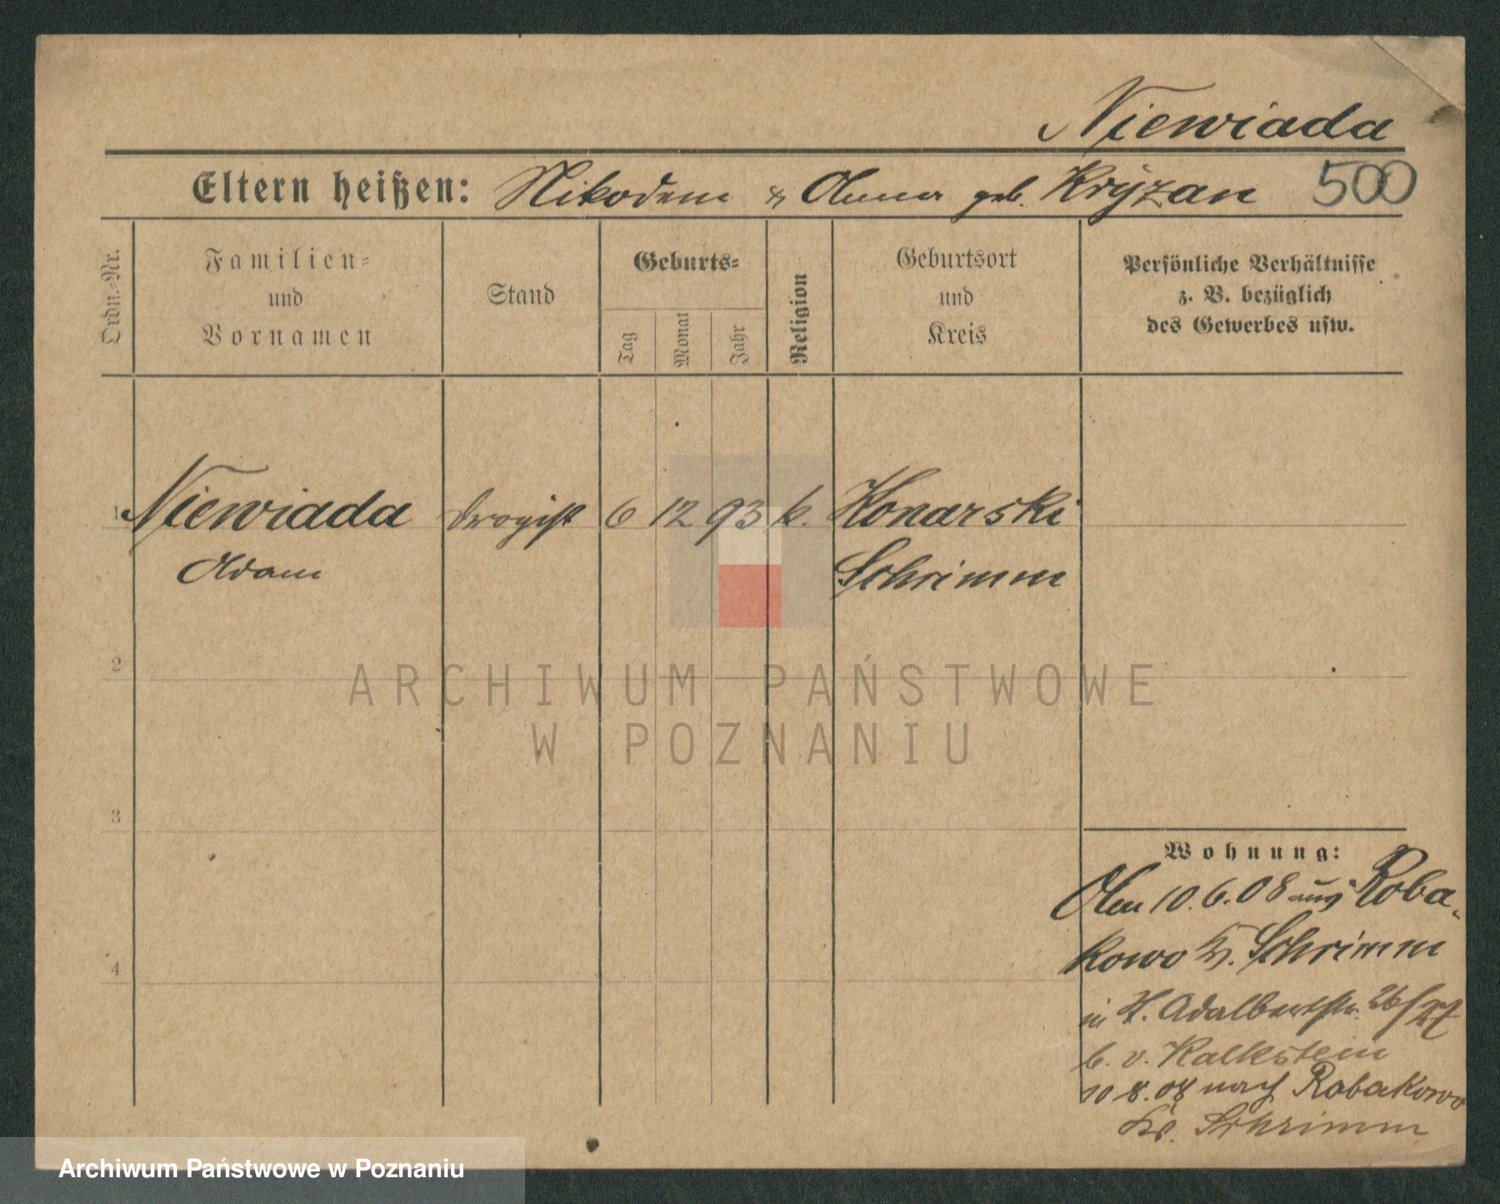 Niewiada
Eltern heißen: Nikodem & Anna geb. Kryzan 500
Ordn.-Nr.
Familien-
und
Vornamen
Stand
Geburts-
Tag
Monat
Jahr
Religion
Geburtsort
und
Kreis
Persönliche Verhältnisse
z. B. bezüglich
des Gewerbes usw.
1 Niewiada Drogist 6 12 93 k. Konarski
Adam Schrimm
2
ARCHIWUM PAŃSTWOWE
W POZNANIU
3
Wohnung:
Am 10.6.08 aus Roba-
kowo Kr. Schrimm
in St. Adalbertstr. 26/27
b. v. Kalkstein
10 8.08 nach Robakowo
Kr. Schrimm
4
Archiwum Państwowe w Poznaniu